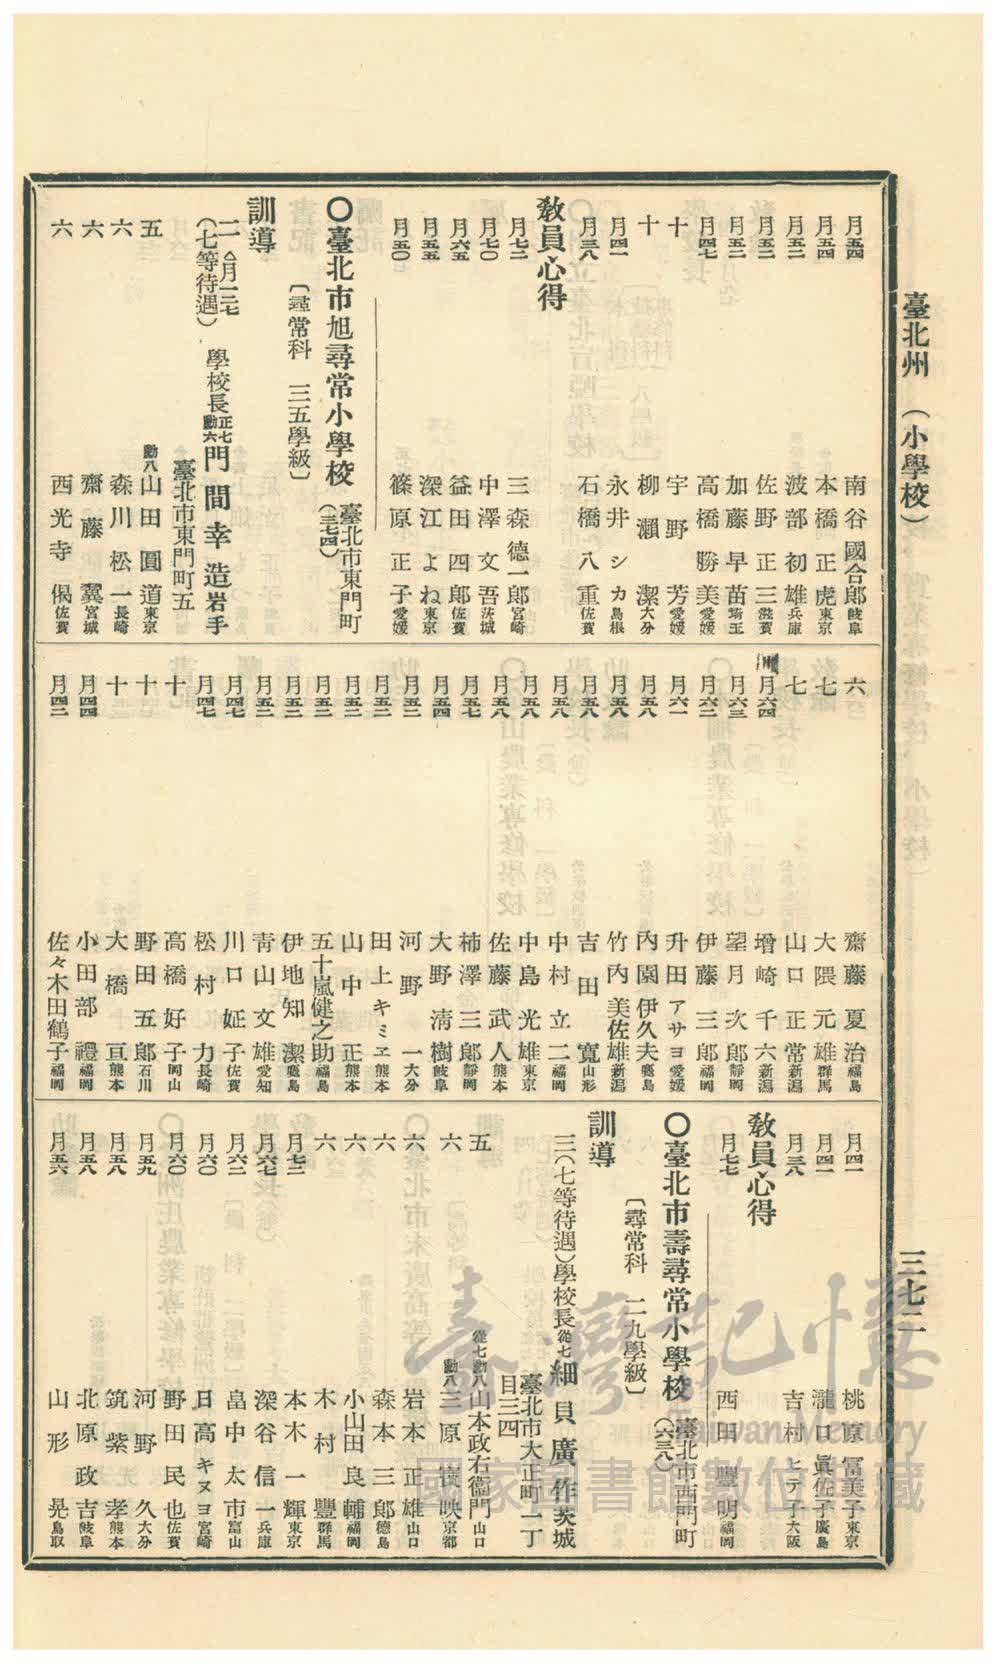 臺北州 （小學校）
三七二
月五四 南谷國合郎 岐阜
月五四 本橋正虎 東京
月五二 波部初雄 兵庫
月五二 佐野正三 滋賀
月五二 加藤早苗 埼玉
月四七 高橋勝美 愛媛
十 宇野芳 愛媛
十 柳瀨潔 大分
月四一 永井シカ 島根
月三八 石橋八重 佐賀
教員心得
月七二 三森德一郎 宮崎
月七〇 中澤文吾 茨城
月六五 益田四郎 佐賀
月五五 深江よね 東京
月五〇 篠原正子 愛媛
〇臺北市旭尋常小學校 （臺北市東門町（三七四）
〔尋常科 三五學級〕
訓導
二 （七等待遇） 學校長 正七勳六 門間幸造 岩手
臺北市東門町五
五 勳八 山田圓道 東京
六 森川松一 長崎
六 齋藤翼 宮城
六 西光寺偈 佐賀
六 齋藤夏治 福島
七 大隈元雄 群馬
七 山口正常 新潟
月六四 增崎千六 新潟
月六三 望月次郎 靜岡
月六二 伊藤三郎 福岡
月六一 升田アサヨ 愛媛
月五八 內園伊久夫 鹿兒島
月五八 竹內美佐雄 新潟
月五八 吉田寬 山形
月五八 中村立二 福岡
月五八 中島光雄 東京
月五八 佐藤武人 熊本
月五七 柿澤三郎 靜岡
月五四 大野淸樹 岐阜
月五二 河野一 大分
月五二 田上キミヱ 熊本
月五二 山中正 熊本
月五二 五十嵐健之助 福島
月五二 伊地知潔 鹿兒島
月五二 靑山文雄 愛知
月四七 川口姃子 佐賀
月四七 松村力 長崎
十 高橋好子 岡山
十 野田五郎 石川
十 大橋亘 熊本
月四四 小田部禮 福岡
月四二 佐々木田鶴子 福岡
月四一 桃原冨美子 東京
月四一 瀧口眞佐子 廣島
月三八 吉村ヒデ子 大阪
教員心得
月七七 西田豐明 福岡
〇臺北市壽尋常小學校 （臺北市西門町（六三八）
〔尋常科 二九學級〕
訓導
三（七等待遇）學校長 從七 細貝廣作 茨城
臺北市大正町一丁目三四
五 從七勳八 山本政右衞門 山口
六 勳八 三原 映 京都
六 岩本正雄 山口
六 森本三郎 德島
六 小山田良輔 福岡
六 木村豐 群馬
月七二 本木一輝 東京
月六七 深谷信一 兵庫
月六二 畠中太市 富山
月六〇 日高キヌヨ 宮崎
月六〇 野田民也 佐賀
月五九 河野久 大分
月五八 筑紫孝 熊本
月五八 北原政吉 岐阜
月五六 山形晃 鳥取
臺灣記憶
Taiwan Memory
國家圖書館數位典藏